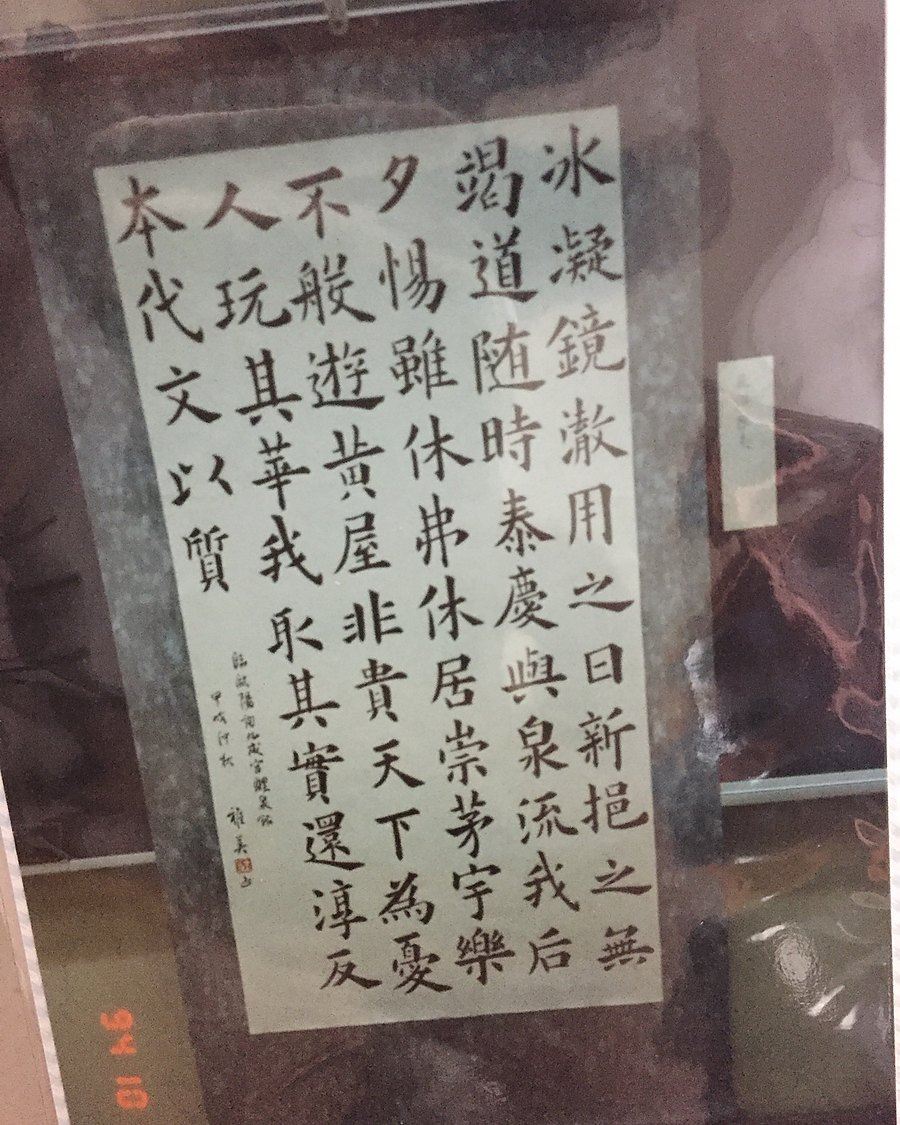 冰凝鏡澈用之日新挹之無
竭道随時泰慶與泉流我后
夕惕雖休弗休居崇茅宇樂
不般遊黄屋非貴天下為憂
人玩其華我取其實還淳反
本代文以質
臨歐陽詢九成宮醴泉銘
甲戌仲秋
雅美
94 10